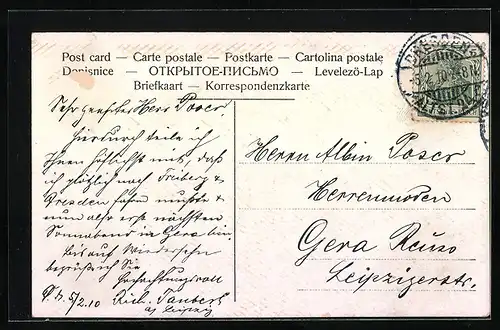 Post card — Carte postale — Postkarte — Cartolina postale
Dopisnice — ОТКРЫТОЕ-ПИСЬМО — Levelező-Lap
Briefkaart — Korrespondenzkarte
DRESDEN
ALTST.
Sehr geehrter Herr Poser,
Hierdurch teile ich
Ihnen höflichst mit, daß
ich plötzlich nach Freiberg &
Dresden fahren mußte &
nun aber erst nächsten
Sonnabend in Gera bin.
Bis auf Wiedersehn
begrüßt Sie
Hochachtungsvoll
5/2.10 Rich. Taubert
Leipzig
Herrn Albin Poser
Herrenmoden
Gera Reuss
Leipzigerstr.